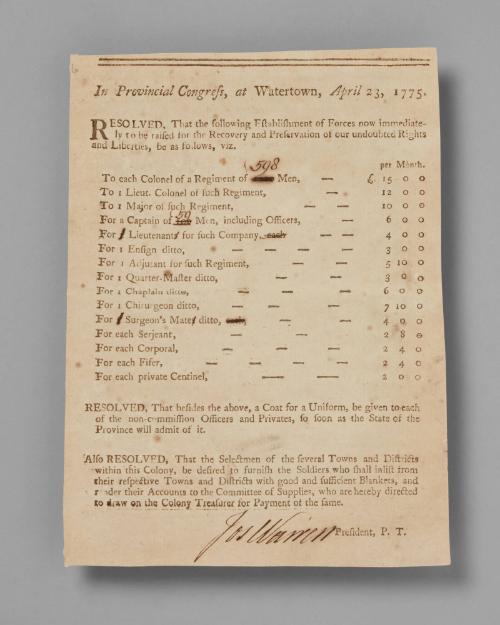 In Provincial Congreſs, at Watertown, April 23, 1775.
RESOLVED, That the following Eſtabliſhment of Forces now immediate-
ly to be raiſed for the Recovery and Preſervation of our undoubted Rights
and Liberties, be as follows, viz.
598
per Month.
To each Colonel of a Regiment of Men, — £. 15 0 0
To 1 Lieut. Colonel of ſuch Regiment, — 12 0 0
To 1 Major of ſuch Regiment, — — 10 0 0
For a Captain of 59 Men, including Officers, — 6 0 0
For 1 Lieutenants for ſuch Company, each — — 4 0 0
For 1 Enſign ditto, — — — — 3 0 0
For 1 Adjutant for ſuch Regiment, — — 5 10 0
For 1 Quarter-Maſter ditto, — — — 3 0 0
For 1 Chaplain ditto, — — — 6 0 0
For 1 Chirurgeon ditto, — — — 7 10 0
For 1 Surgeon's Mates ditto, — — 4 0 0
For each Serjeant, — — — 2 8 0
For each Corporal, — — — 2 4 0
For each Fifer, — — — — 2 4 0
For each private Centinel, — — 2 0 0
RESOLVED, That beſides the above, a Coat for a Uniform, be given to each
of the non-commiſſion Officers and Privates, ſo ſoon as the State of the
Province will admit of it.
Alſo RESOLVED, That the Selectmen of the ſeveral Towns and Diſtricts
within this Colony, be deſired to furniſh the Soldiers who ſhall inliſt from
their reſpective Towns and Diſtricts with good and ſufficient Blankets, and
render their Accounts to the Committee of Supplies, who are hereby directed
to draw on the Colony Treaſurer for Payment of the ſame.
Jos Warren Preſident, P. T.